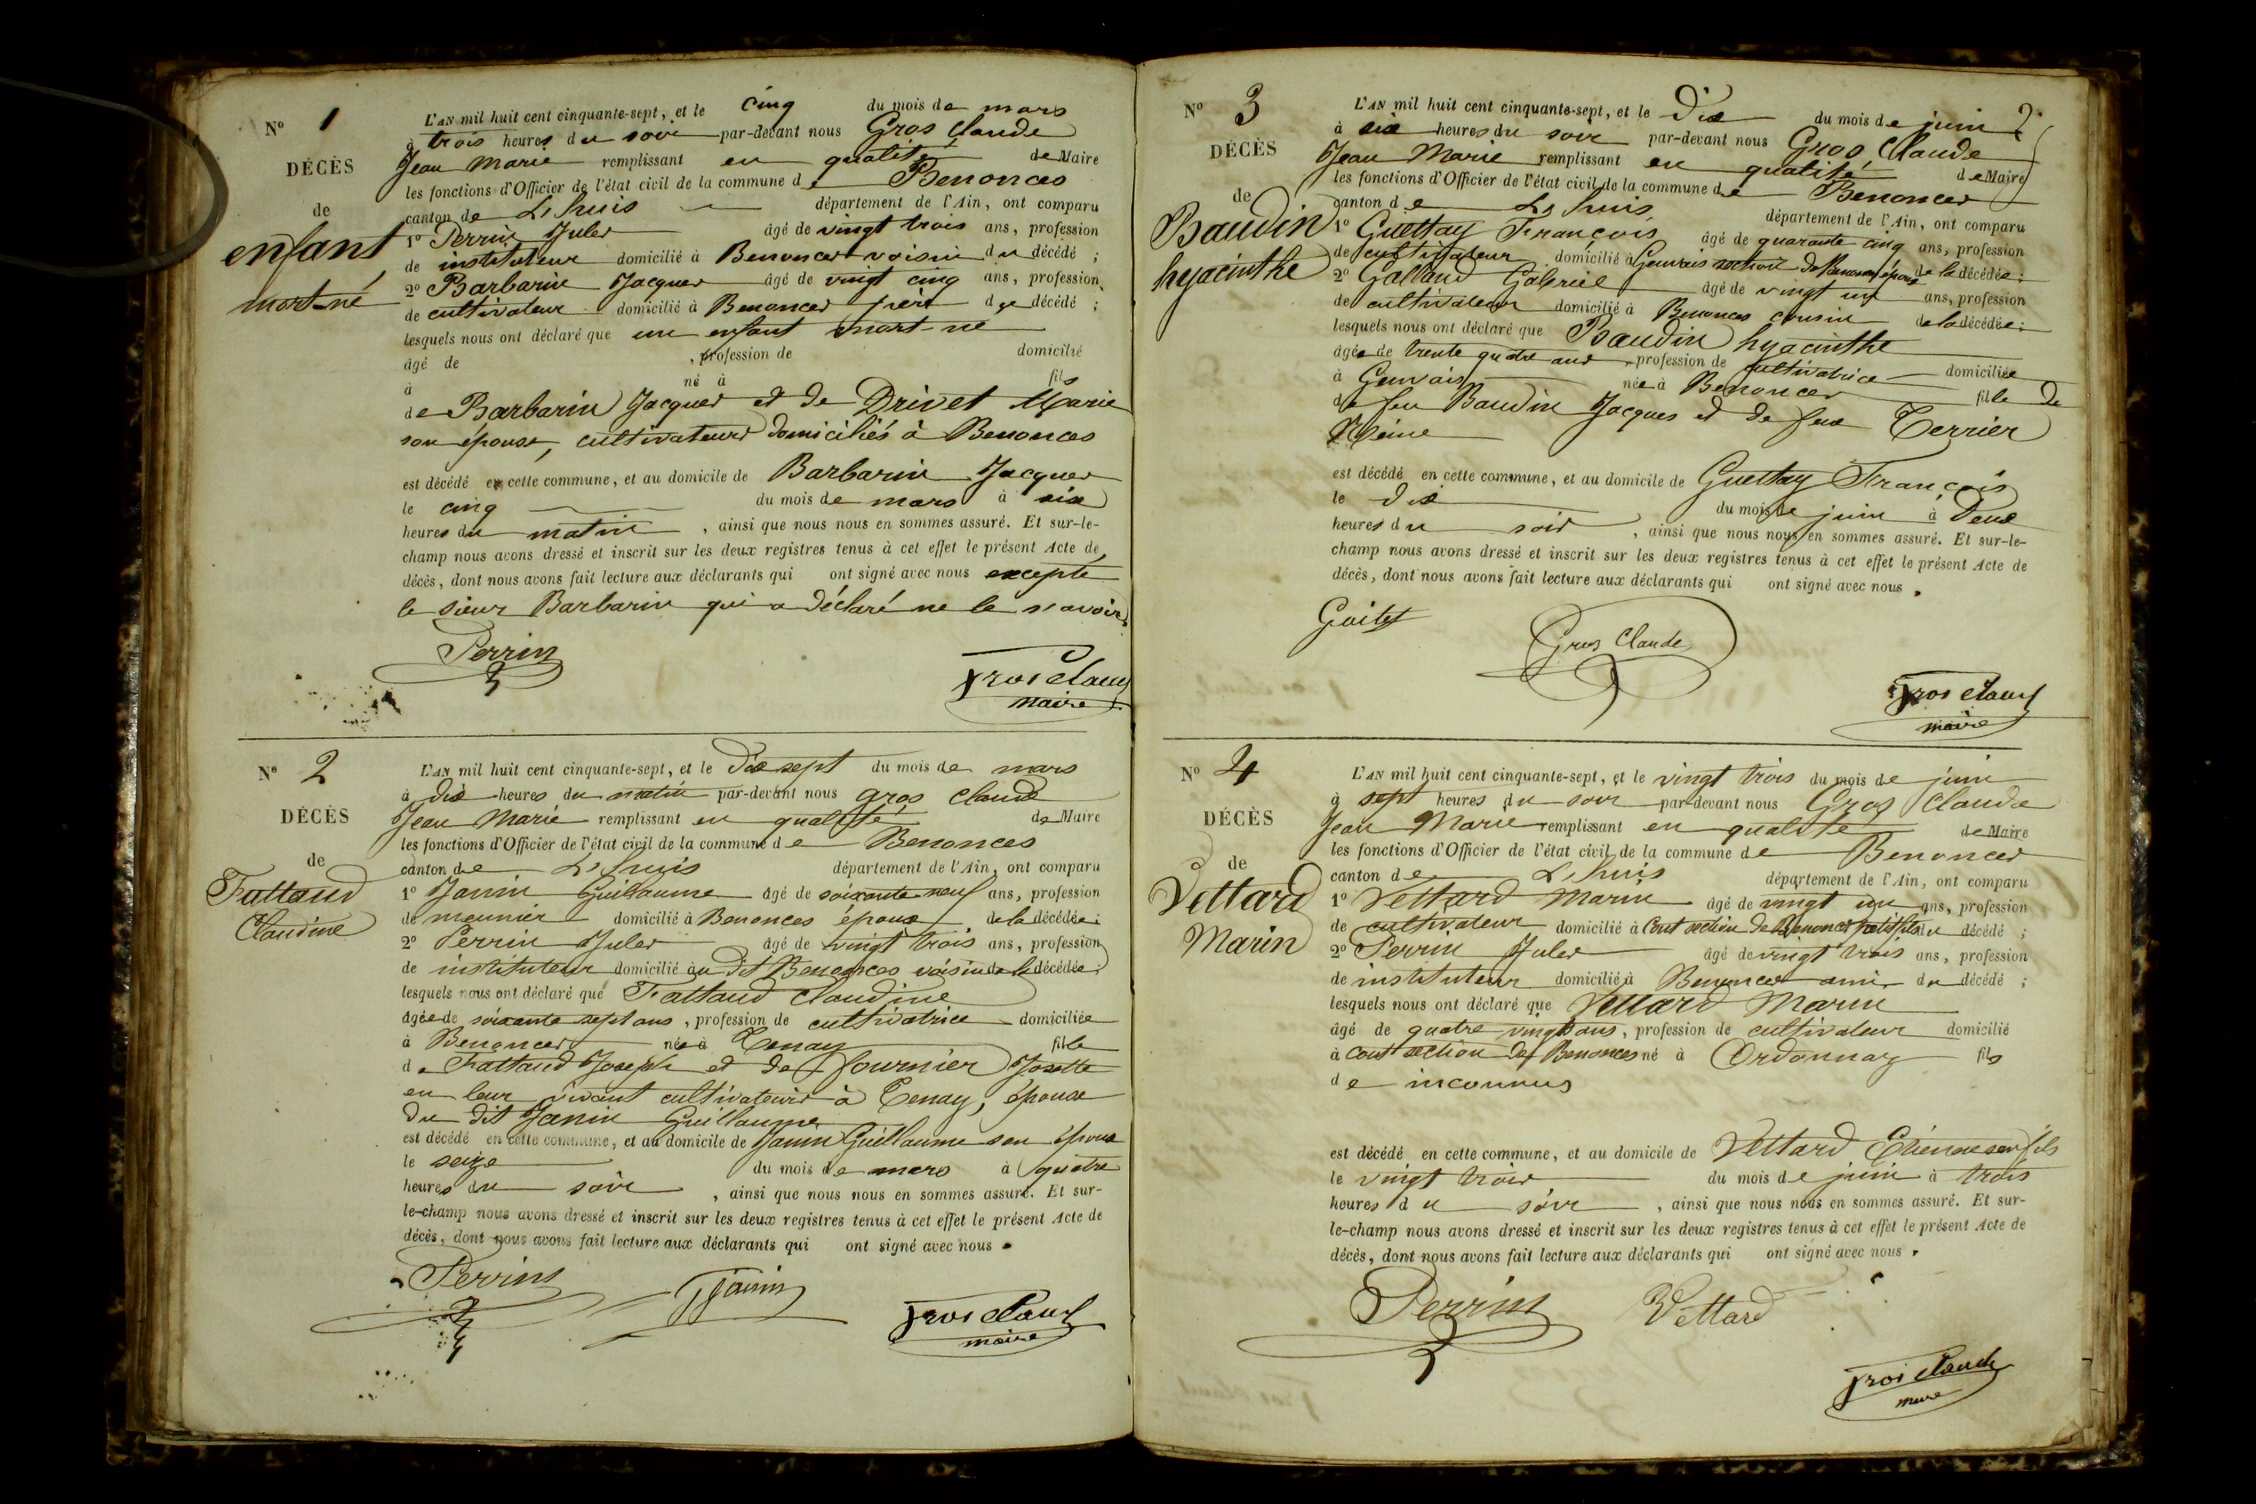 N° 1
DÉCÈS
de
enfant
mort-né
L'AN mil huit cent cinquante-sept, et le cinq du mois de mars
à trois heures du soir par-devant nous Gros Claude
Jean Marie remplissant en qualité de Maire
les fonctions d'Officier de l'état civil de la commune de Benonces
canton de Lhuis département de l'Ain, ont comparu
1° Perrin Jules âgé de vingt trois ans, profession
de instituteur domicilié à Benonces voisin du décédé ;
2° Barbarin Jacques âgé de vingt cinq ans, profession
de cultivateur domicilié à Benonces père du décédé ;
lesquels nous ont déclaré que un enfant mort-né
âgé de , profession de domicilié
à né à fils
de Barbarin Jacques et de Drivet Marie
son épouse, cultivateurs domiciliés à Benonces
est décédé en cette commune, et au domicile de Barbarin Jacques
le cinq du mois de mars à six
heures du matin , ainsi que nous nous en sommes assuré. Et sur-le-
champ nous avons dressé et inscrit sur les deux registres tenus à cet effet le présent Acte de
décès, dont nous avons fait lecture aux déclarants qui ont signé avec nous excepté
le sieur Barbarin qui a déclaré ne le savoir.
Perrin
Gros Claude
maire
N° 2
DÉCÈS
de
Fattaud
Claudine
L'AN mil huit cent cinquante-sept, et le dix sept du mois de mars
à dix heures du matin par-devant nous gros Claude
Jean Marie remplissant en qualité de Maire
les fonctions d'Officier de l'état civil de la commune de Benonces
canton de Lhuis département de l'Ain, ont comparu
1° Janin Guillaume âgé de soixante neuf ans, profession
de meunier domicilié à Benonces époux de la décédée ;
2° Perrin Jules âgé de vingt trois ans, profession
de instituteur domicilié au dit Benonces voisin de la décédée ;
lesquels nous ont déclaré que Fattaud Claudine
âgée de soixante sept ans, profession de cultivatrice domiciliée
à Benonces née à Tenay fille
de Fattaud Joseph et de Fournier Josette
en leur vivant cultivateurs à Tenay, épouse
du dit Janin Guillaume
est décédé en cette commune, et au domicile de Janin Guillaume son époux
le seize du mois de mars à quatre
heures du soir , ainsi que nous nous en sommes assuré. Et sur-
le-champ nous avons dressé et inscrit sur les deux registres tenus à cet effet le présent Acte de
décès, dont nous avons fait lecture aux déclarants qui ont signé avec nous.
Perrin
Janin
Gros Claude
maire
2
N° 3
DÉCÈS
de
Baudin
hyacinthe
L'AN mil huit cent cinquante-sept, et le Dix du mois de juin
à six heures du soir par-devant nous Gros Claude
Jean Marie remplissant en qualité de Maire
les fonctions d'Officier de l'état civil de la commune de Benonces
canton de Lhuis département de l'Ain, ont comparu
1° Guettay François âgé de quarante cinq ans, profession
de cultivateur domicilié à Genvais section de Benonces époux de la décédée ;
2° Galland Gabriel âgé de vingt un ans, profession
de cultivateur domicilié à Benonces cousin de la décédée ;
lesquels nous ont déclaré que Baudin hyacinthe
âgée de trente quatre ans , profession de cultivatrice domiciliée
à Genvais née à Benonces fille de
de feu Baudin Jacques et de feue Terrier
Reine
est décédé en cette commune, et au domicile de Guettay François
le dix du mois de juin à Deux
heures du soir , ainsi que nous nous en sommes assuré. Et sur-le-
champ nous avons dressé et inscrit sur les deux registres tenus à cet effet le présent Acte de
décès, dont nous avons fait lecture aux déclarants qui ont signé avec nous.
Gros Claude
Gros Claude
maire
N° 4
DÉCÈS
de
Vettard
Marin
L'AN mil huit cent cinquante-sept, et le vingt trois du mois de juin
à sept heures du soir par-devant nous Gros Claude
Jean Marie remplissant en qualité de Maire
les fonctions d'Officier de l'état civil de la commune de Benonces
canton de Lhuis département de l'Ain, ont comparu
1° Vettard Marin âgé de vingt un ans, profession
de cultivateur domicilié à Cout section de Benonces petit fils du décédé ;
2° Perrin Jules âgé de vingt trois ans, profession
de instituteur domicilié à Benonces ami du décédé ;
lesquels nous ont déclaré que Vettard Marin
âgé de quatre vingts ans, profession de cultivateur domicilié
à Cout section de Benonces né à Ordonnaz fils
de inconnus
est décédé en cette commune, et au domicile de Vettard Etienne son fils
le vingt trois du mois de juin à trois
heures du soir , ainsi que nous nous en sommes assuré. Et sur-
le-champ nous avons dressé et inscrit sur les deux registres tenus à cet effet le présent Acte de
décès, dont nous avons fait lecture aux déclarants qui ont signé avec nous.
Perrin
Vettard
Gros Claude
maire